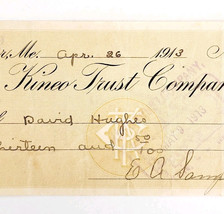 Me. Apr. 26 1913
Kineo Trust Compan
David Hughes
hirteen and 50/100
E A Samp